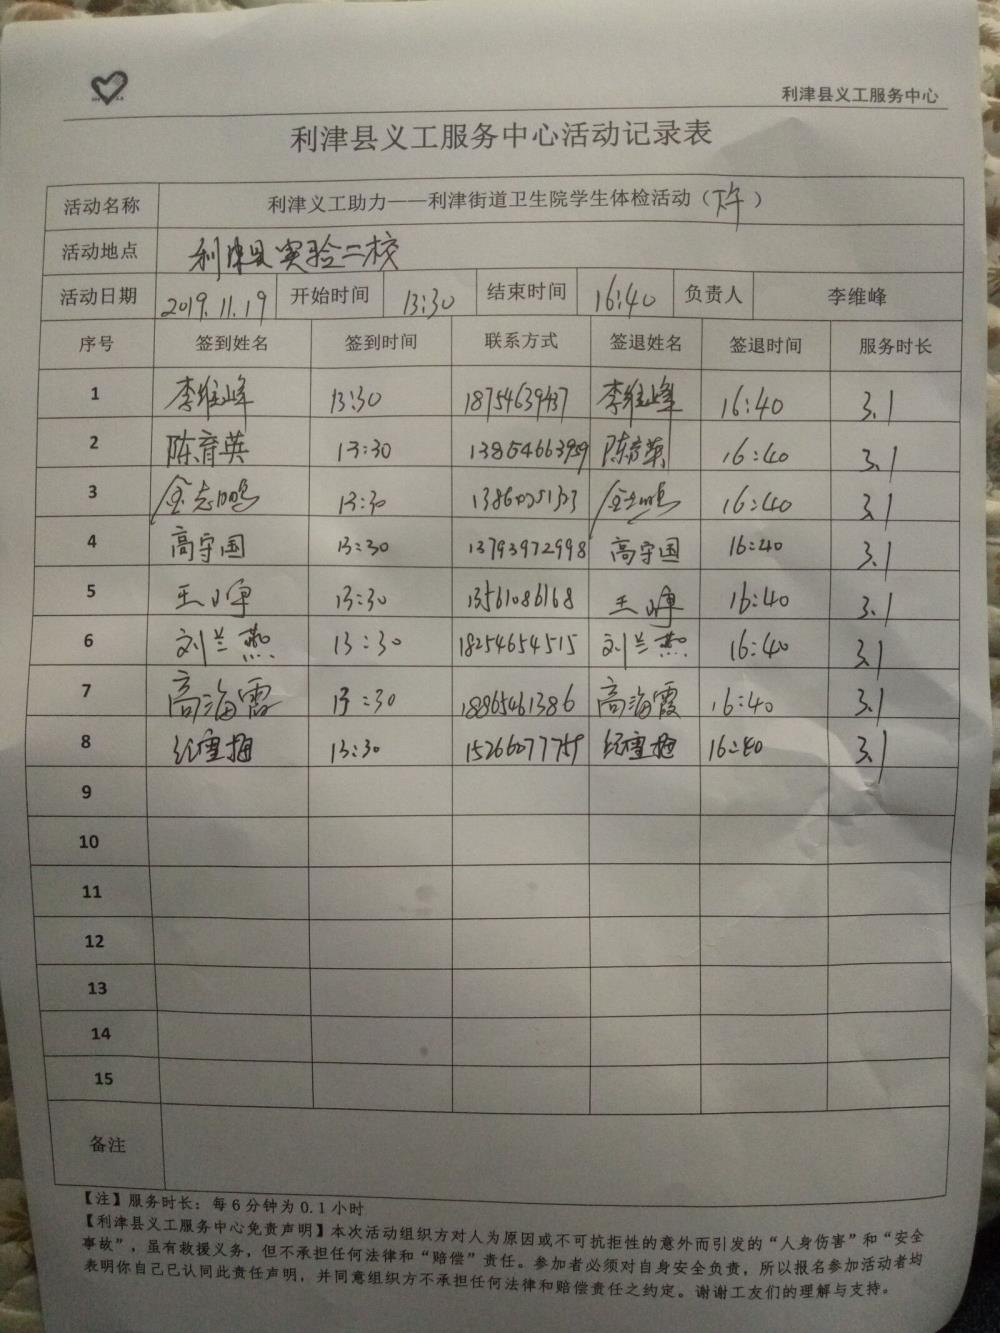 利津县义工服务中心
利津县义工服务中心活动记录表
活动名称 利津义工助力——利津街道卫生院学生体检活动（下午）
活动地点 利津县实验二校
活动日期 2019.11.19 开始时间 13:30 结束时间 16:40 负责人 李维峰
序号 签到姓名 签到时间 联系方式 签退姓名 签退时间 服务时长
1 李维峰 13:30 18754639437 李维峰 16:40 3.1
2 陈育英 13:30 13854663959 陈育英 16:40 3.1
3 金志鸣 13:30 金志鸣 16:40 3.1
4 高守国 13:30 13793972998 高守国 16:40 3.1
5 王 13:30 13561086168 王 16:40 3.1
6 刘兰燕 13:30 18254654515 刘兰燕 16:40 3.1
7 高海霞 13:30 18865461386 高海霞 16:40 3.1
8 纪雪梅 13:30 15266077759 纪雪梅 16:40 3.1
9
10
11
12
13
14
15
备注
【注】服务时长：每6分钟为0.1小时
【利津县义工服务中心免责声明】本次活动组织方对人为原因或不可抗拒性的意外而引发的“人身伤害”和“安全
事故”，虽有救援义务，但不承担任何法律和“赔偿”责任。参加者必须对自身安全负责，所以报名参加活动者均
表明你自己已认同此责任声明，并同意组织方不承担任何法律和赔偿责任之约定。谢谢工友们的理解与支持。